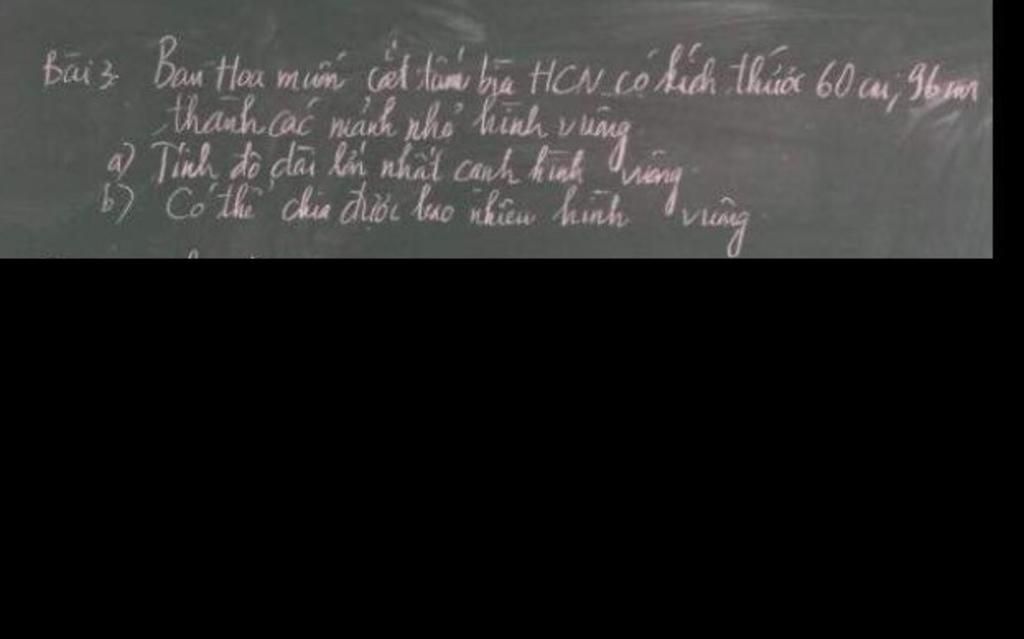 Bài 3. Bạn Hoa muốn cắt tấm bìa HCN có kích thước 60 cm, 96 cm
thành các mảnh nhỏ hình vuông
a) Tính độ dài lớn nhất cạnh hình vuông
b) Có thể chia được bao nhiêu hình vuông